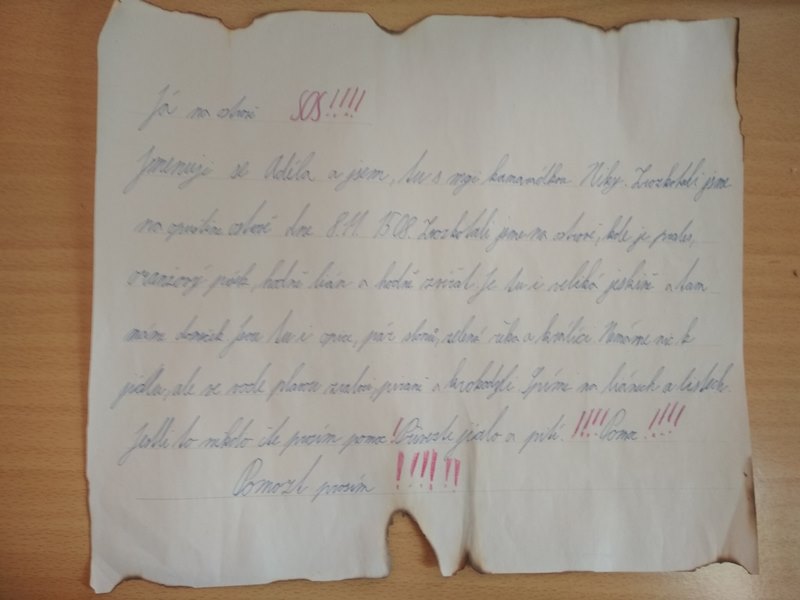 Já na ostrově SOS!!!!
Jmenuji se Adéla a jsem, tu s mojí kamarádkou Niky. Ztroskotali jsme
na opuštěném ostrově dne 8.11. 1508. Ztroskotali jsme na ostrově, kde je prales,
oranžový písek, hodně lián a hodně zvířat. Je tu i veliká jeskině a tam
máme domeček. Jsou tu i opice, pár slonů, zelená řeka a kvítí. Nemáme nic k
jídlu, ale ve vodě plavou žraloci, pirani a krokodýli. Spíme na liánach a listech.
Jestli to někdo čte prosím pomoc! Přivezte jídlo a pití. !!!! Pomoc !!!!
Pomozt prosím !!!! !!